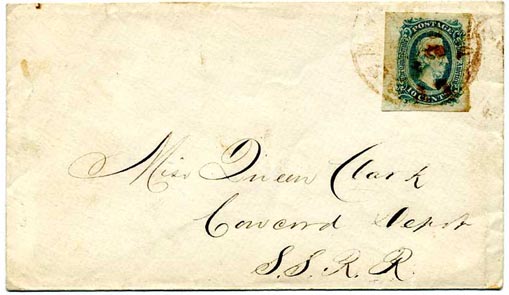 POSTAGE
10 CENTS
Miss Queen Clark
Concord Depot
S. S. R. R.